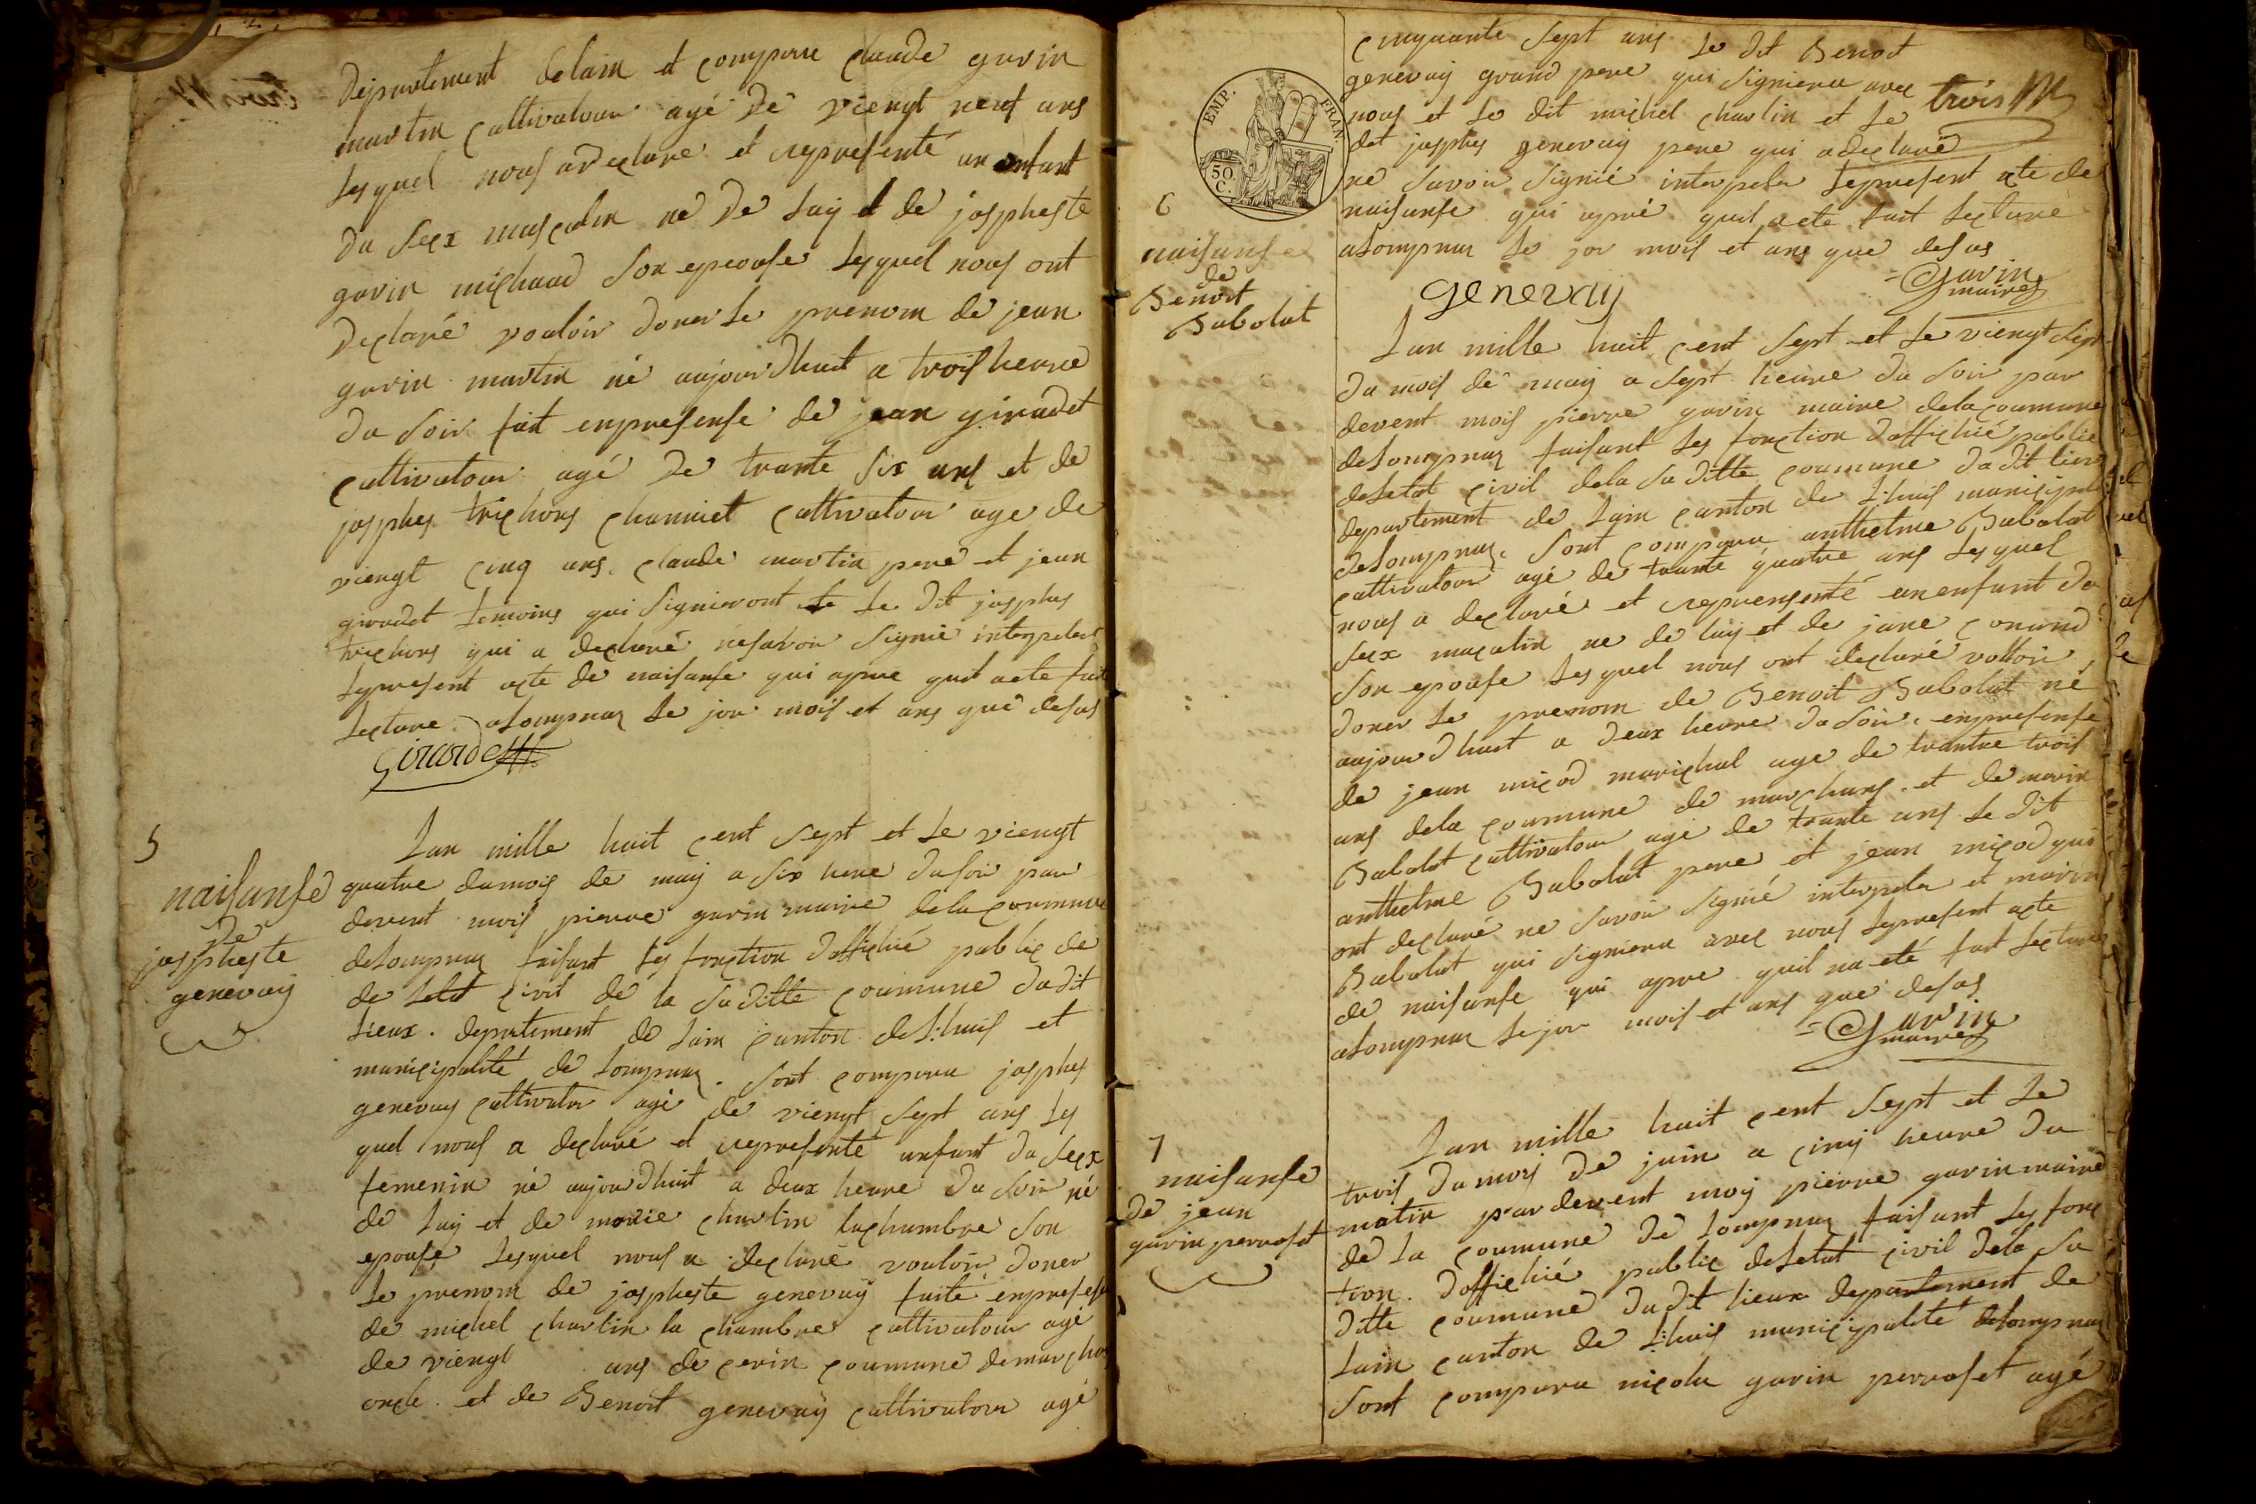 departement delain et comparu claude gurin
martin cultivatour agé de viengt neuf ans
lesquel nous adeclaré et representé un enfant
du sexx masculin né de luy et de jospheste
gurin michaud son epeouse lesquel nous ont
declaré vouloir doner le prenom de jean
gurin martin né aujourdhuit a trois heure
du soir fait enpresense de jean giraudet
cultivatour agé de trante six ans et de
josphes trichons channiet cultivatour age de
viengt cinq ans. claude martin pere et jean
giroudet temoins qui signieront le dit josphes
trichons qui a declaré nesavoir signié interpelet
lepresent acte de naisanse qui apre quil acte fait
lecture alompnaz le jour mois et ans que desus
Girardet
5
naisanse
de
jospheste
genevay
Lan mille huit cent sept et le viengt
quatre dumois de may a six heure dusoir par
devent mois pierre gurin maire dela commune
delompnaz faisant les fonction dofficié public de
de letat civil de la suditte coumune dudit
lieux. departement de lain canton de st: huis et
municipalité de lompnaz. sont comparu josphes
genevay cultivator agé de viengt sept ans les
quel nous a declaré et representé anfant du sexx
femenin né aujourdhuit a deux heure du soir né
de luy et de marie charlin lachambre son
epouse lesquel nous a declaré vouloir doner
le prenom de jospheste genevay faite enpresense
de michel charlin la chambre cultivatour agé
de viengt ans de cerin coumune demarcho
oncle. et de Benoit genevay cultivatour agé
trois
cinquante sept ans le dit Benoit
genevay grand pere qui signiera avec
nous et le dit michel charlin et le
dit josphes genevay pere qui adeclaré
ne savoir signié interpeler lepresent acte de
naisanse qui apré quil acte fait lecture
alompnaz le jor mois et ans que desus
genevay
Gurin
maire
EMP. FRAN.
50.
C.
6
naisanse
de
Benoit
Babolat
Lan mille huit cent sept et le viengt sept
du mois de may a sept heure du soir par
devent mois pierre gurin maire delacoumune
delompnaz faisant les fonction dofficié public
deletat civil dela suditte coumune dudit lieu
departement de lain canton de st: huis municipal
delompnaz. sont comparu anthelme Babolat
cultivatour agé de trante quatre ans lesquel
nous a declaré et reprensenté unenfant du
sexx masculin né de luy et de jane conand
son epouse lesquel nous ont declaré volloir
doner le prenom de Benoit Babolat né
aujourdhuit a deux heure dusoir. enpresense
de jean micod marichal age de trantre trois
ans dela coumune de marchans. et de marin
Babolat cultivatour agé de trante ans le dit
anthelme Babolat pere et jean micod qui
ont declaré ne savoir signié interpeler et marin
Babolat qui signiera avec nous lepresent acte
de naisanse qui apre quil na eté fait lecture
alompnaz le jor mois et ans que desus
Gurin
maire
7
naisanse
de jean
gurin perroset
Lan mille huit cent sept et le
trois du mois de juin a cinq heure du
matin pardevent moy pierre gurin maire
de la coumune de lompnaz faisant les fonc
tion. dofficié public deletat civil dela su
ditte coumune dudit lieux departement de
lain canton de st: huis municipalité delompnaz
sont comparu nicolu gurin perroset agé